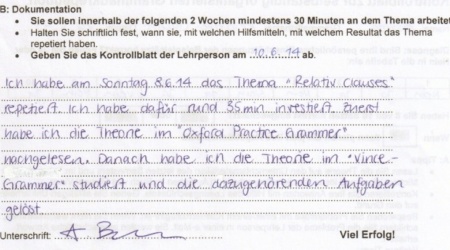 B: Dokumentation
• Sie sollen innerhalb der folgenden 2 Wochen mindestens 30 Minuten an dem Thema arbeite
• Halten Sie schriftlich fest, wann sie, mit welchen Hilfsmitteln, mit welchem Resultat das Thema
repetiert haben.
• Geben Sie das Kontrollblatt der Lehrperson am 10.6.14 ab.
Ich habe am Sonntag 8.6.14 das Thema "Relativ Clauses"
repetiert. Ich habe dafür rund 35min investiert. Zuerst
habe ich die Theorie im "Oxford Practice Grammer"
nachgelesen. Danach habe ich die Theorie im "Vince-
Grammer" studiert und die dazugehörenden Aufgaben
gelöst.
Unterschrift: Viel Erfolg!